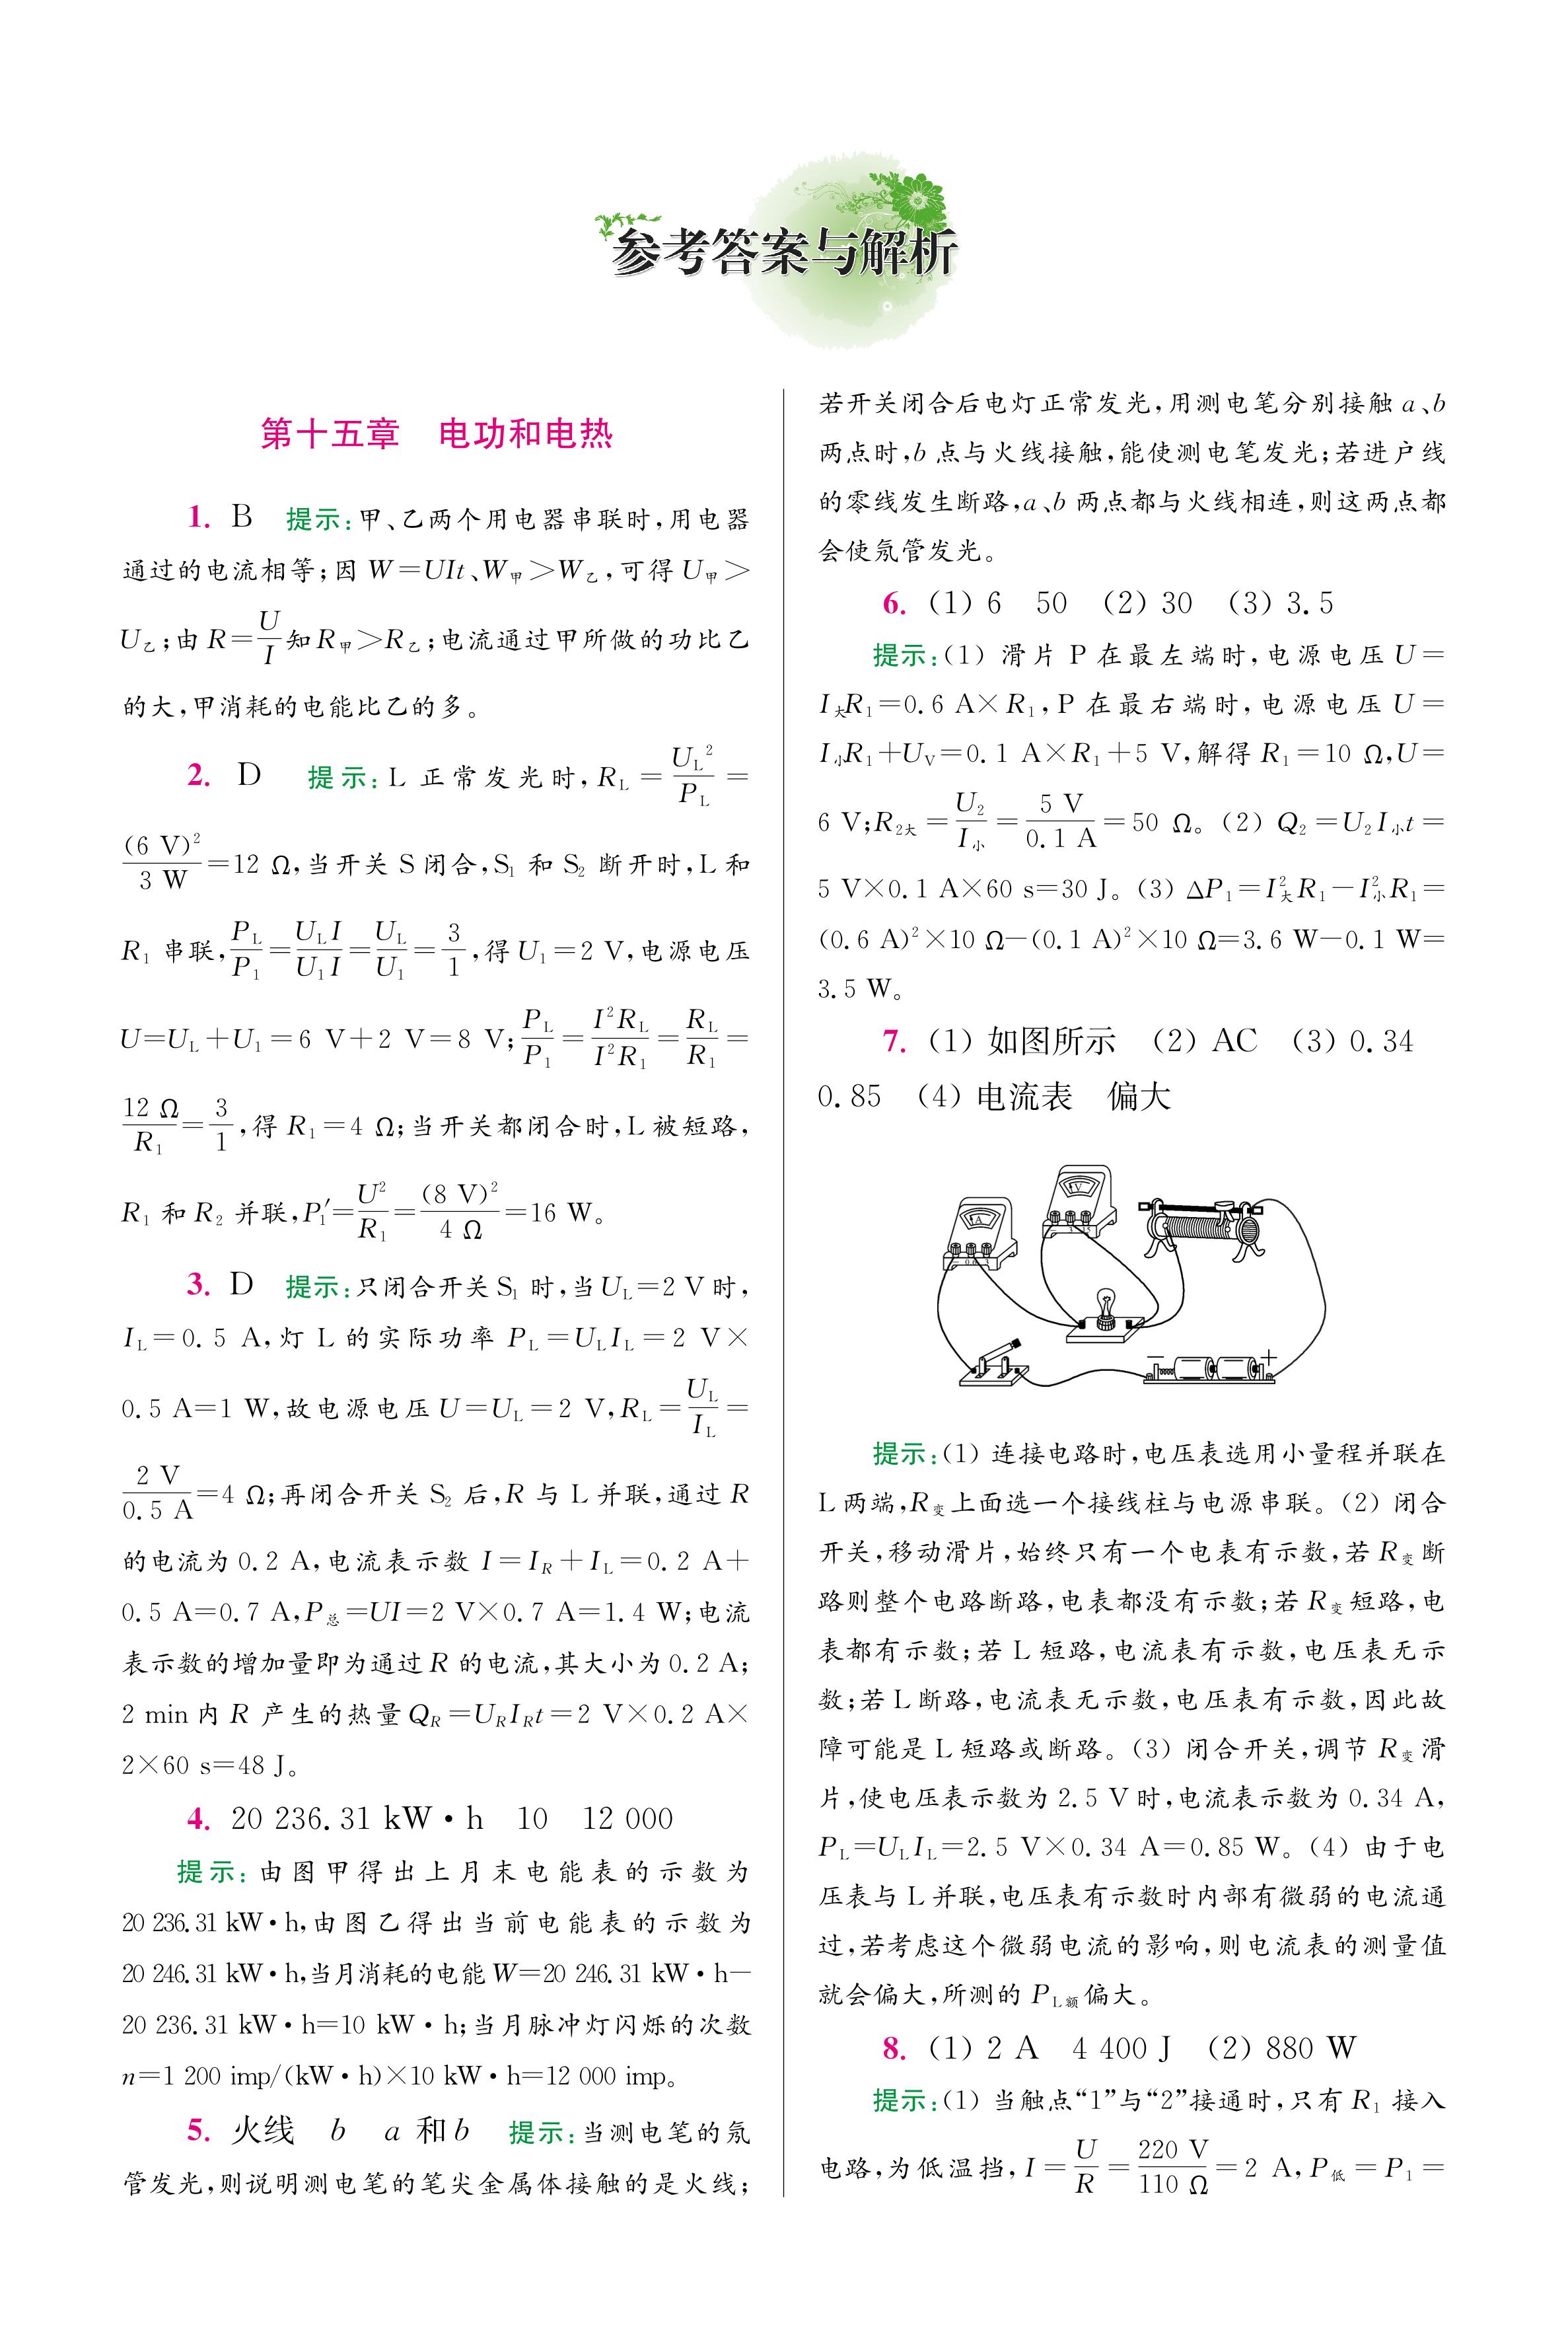 参考答案与解析
第十五章 电功和电热
1. B 提示:甲、乙两个用电器串联时,用电器
通过的电流相等;因 W=UIt、W甲>W乙,可得 U甲>
U乙;由 R=U/I 知 R甲>R乙;电流通过甲所做的功比乙
的大,甲消耗的电能比乙的多。
2. D 提示:L 正常发光时,R_L=U_L²/P_L=
(6 V)²/3 W=12 Ω,当开关 S 闭合,S₁ 和 S₂ 断开时,L 和
R₁ 串联,P_L/P₁=U_L I/U₁I=U_L/U₁=3/1,得 U₁=2 V,电源电压
U=U_L+U₁=6 V+2 V=8 V;P_L/P₁=I²R_L/I²R₁=R_L/R₁=
12 Ω/R₁=3/1,得 R₁=4 Ω;当开关都闭合时,L 被短路,
R₁ 和 R₂ 并联,P₁′=U²/R₁=(8 V)²/4 Ω=16 W。
3. D 提示:只闭合开关 S₁ 时,当 U_L=2 V 时,
I_L=0.5 A,灯 L 的实际功率 P_L=U_L I_L=2 V×
0.5 A=1 W,故电源电压 U=U_L=2 V,R_L=U_L/I_L=
2 V/0.5 A=4 Ω;再闭合开关 S₂ 后,R 与 L 并联,通过 R
的电流为 0.2 A,电流表示数 I=I_R+I_L=0.2 A+
0.5 A=0.7 A,P总=UI=2 V×0.7 A=1.4 W;电流
表示数的增加量即为通过 R 的电流,其大小为 0.2 A;
2 min 内 R 产生的热量 Q_R=U_R I_R t=2 V×0.2 A×
2×60 s=48 J。
4. 20 236.31 kW·h 10 12 000
提示:由图甲得出上月末电能表的示数为
20 236.31 kW·h,由图乙得出当前电能表的示数为
20 246.31 kW·h,当月消耗的电能 W=20 246.31 kW·h−
20 236.31 kW·h=10 kW·h;当月脉冲灯闪烁的次数
n=1 200 imp/(kW·h)×10 kW·h=12 000 imp。
5. 火线 b a 和 b 提示:当测电笔的氖
管发光,则说明测电笔的笔尖金属体接触的是火线;
若开关闭合后电灯正常发光,用测电笔分别接触 a、b
两点时,b 点与火线接触,能使测电笔发光;若进户线
的零线发生断路,a、b 两点都与火线相连,则这两点都
会使氖管发光。
6. (1) 6 50 (2) 30 (3) 3.5
提示:(1) 滑片 P 在最左端时,电源电压 U=
I大R₁=0.6 A×R₁,P 在最右端时,电源电压 U=
I小R₁+U_V=0.1 A×R₁+5 V,解得 R₁=10 Ω,U=
6 V;R₂大=U₂/I小=5 V/0.1 A=50 Ω。(2) Q₂=U₂I小t=
5 V×0.1 A×60 s=30 J。(3) ΔP₁=I²大R₁−I²小R₁=
(0.6 A)²×10 Ω−(0.1 A)²×10 Ω=3.6 W−0.1 W=
3.5 W。
7. (1) 如图所示 (2) AC (3) 0.34
0.85 (4) 电流表 偏大
A
V
− +
提示:(1) 连接电路时,电压表选用小量程并联在
L 两端,R变上面选一个接线柱与电源串联。(2) 闭合
开关,移动滑片,始终只有一个电表有示数,若 R变断
路则整个电路断路,电表都没有示数;若 R变短路,电
表都有示数;若 L 短路,电流表有示数,电压表无示
数;若 L 断路,电流表无示数,电压表有示数,因此故
障可能是 L 短路或断路。(3) 闭合开关,调节 R变滑
片,使电压表示数为 2.5 V 时,电流表示数为 0.34 A,
P_L=U_L I_L=2.5 V×0.34 A=0.85 W。(4) 由于电
压表与 L 并联,电压表有示数时内部有微弱的电流通
过,若考虑这个微弱电流的影响,则电流表的测量值
就会偏大,所测的 P_L额偏大。
8. (1) 2 A 4 400 J (2) 880 W
提示:(1) 当触点“1”与“2”接通时,只有 R₁ 接入
电路,为低温挡,I=U/R=220 V/110 Ω=2 A,P低=P₁=